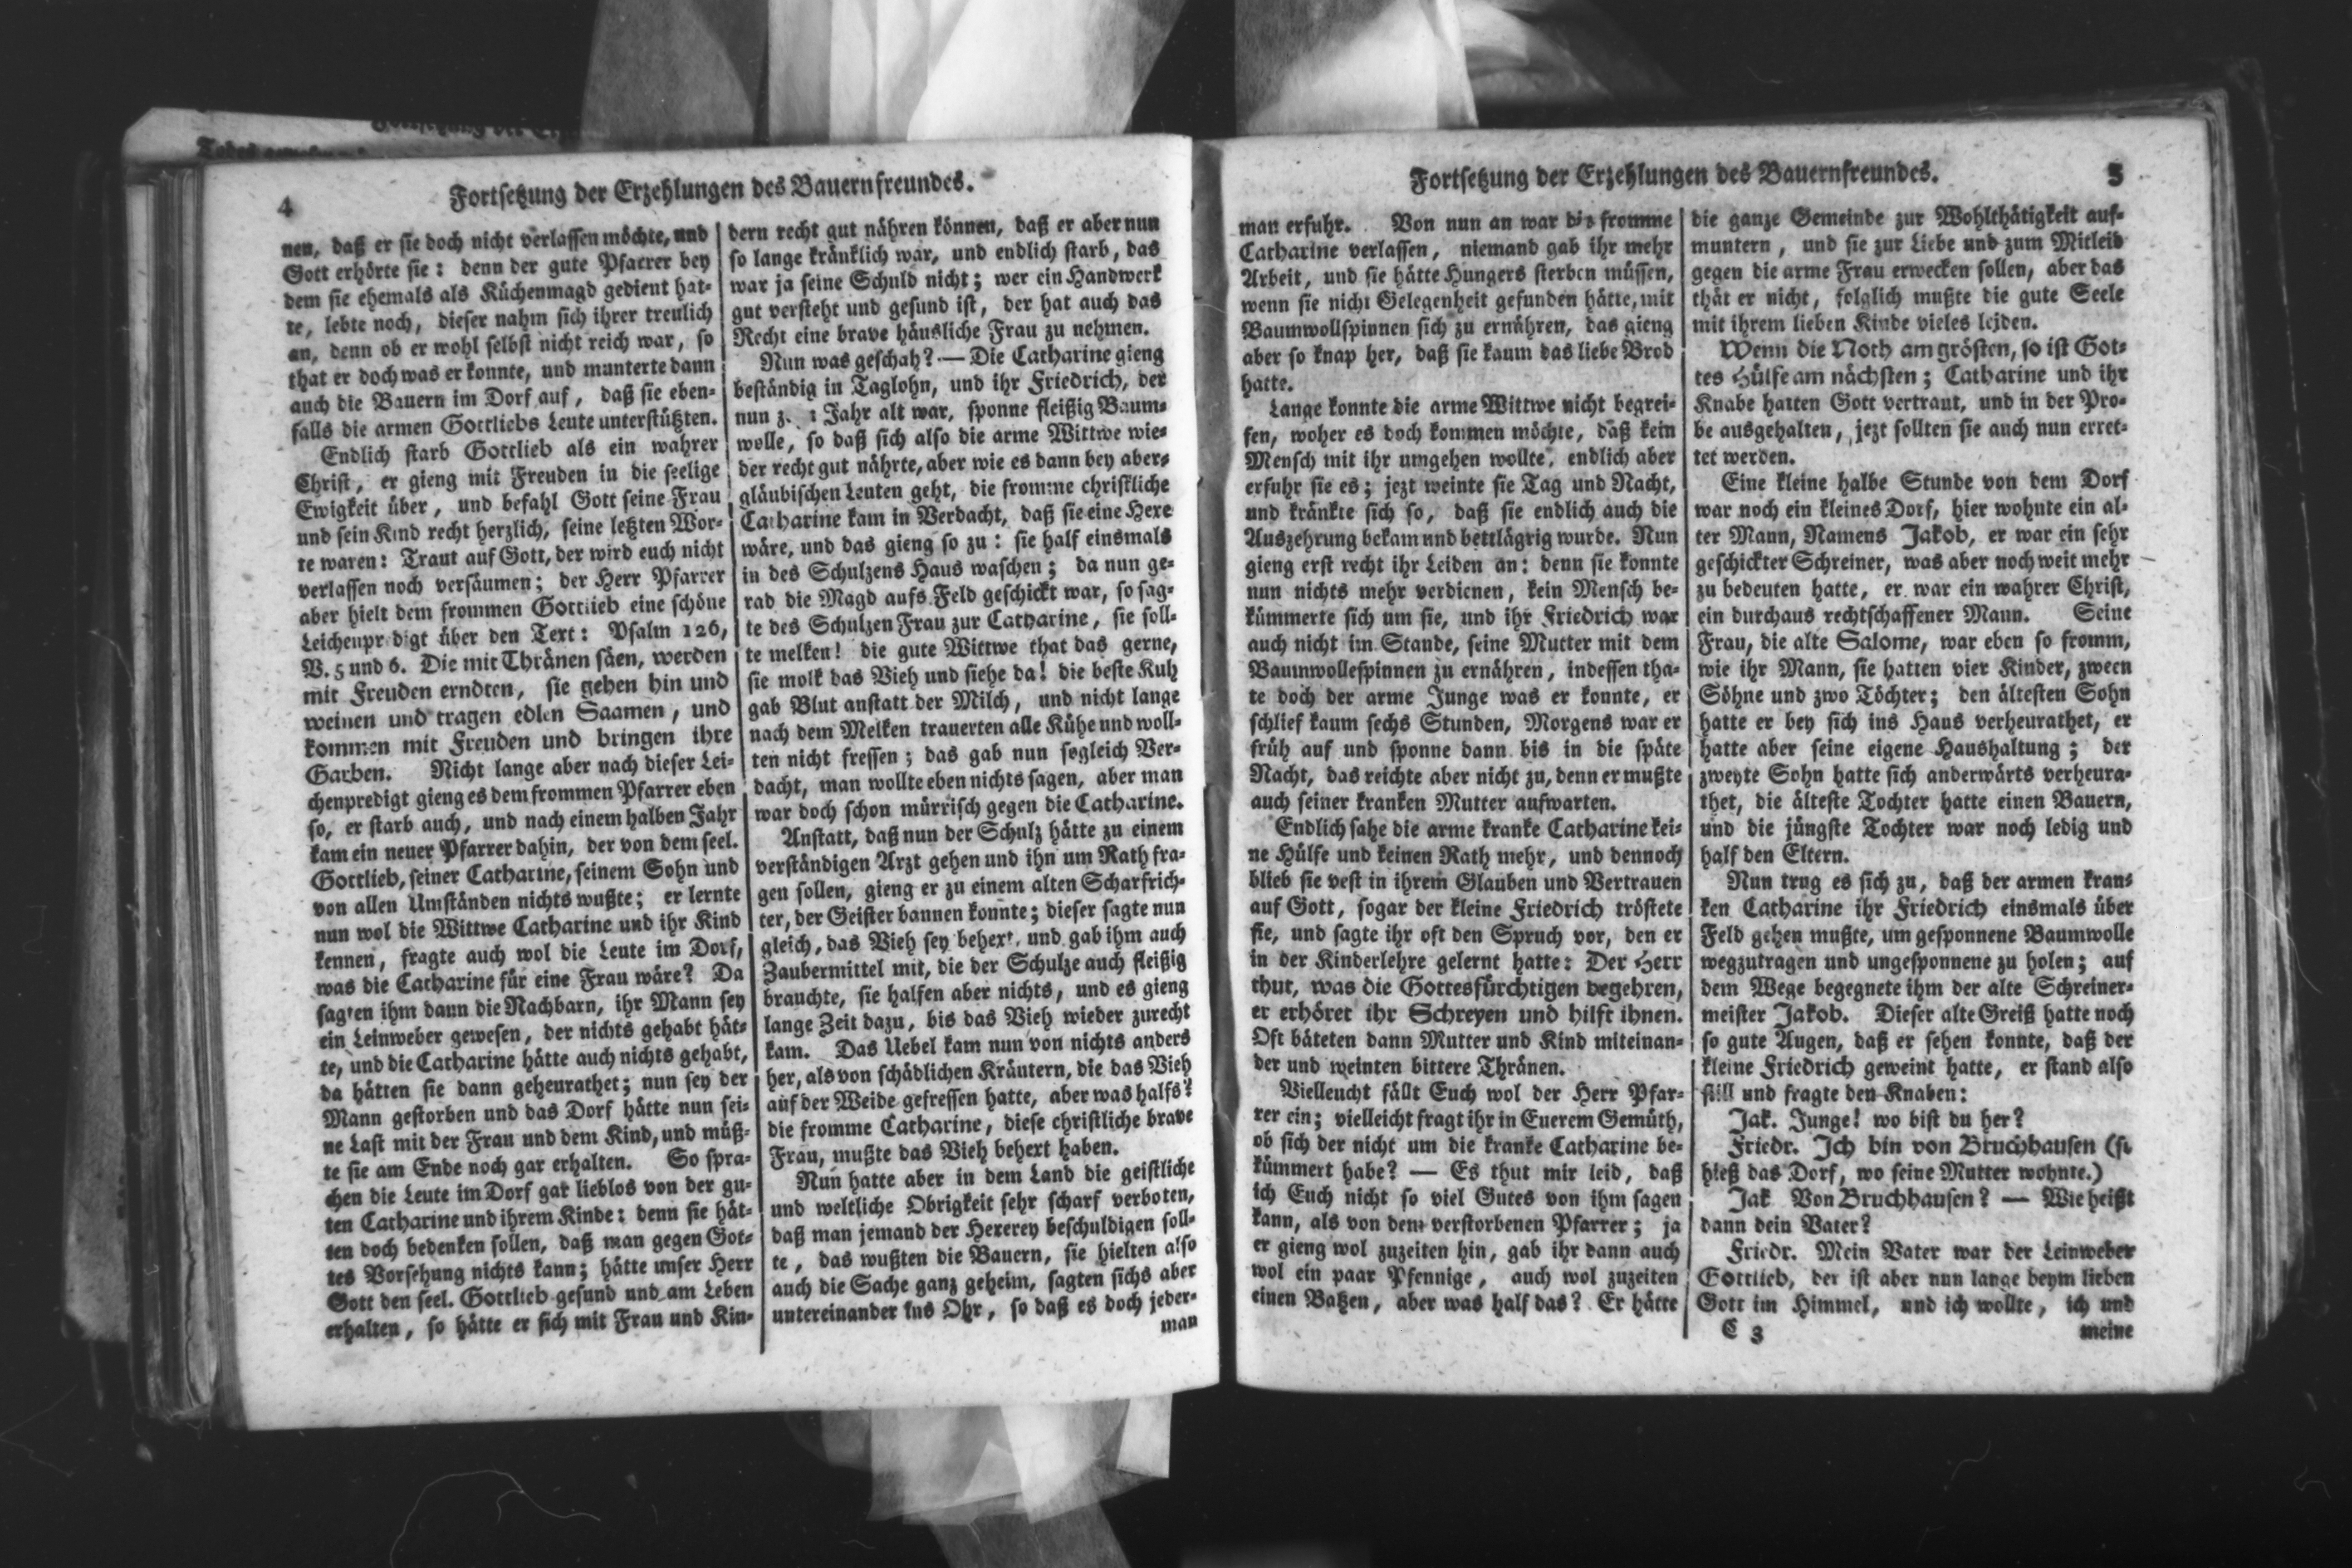 4
Fortsetzung der Erzehlungen des Bauernfreundes.
nen, daß er sie doch nicht verlassen möchte, und
Gott erhörte sie: denn der gute Pfarrer bey
dem sie ehemals als Küchenmagd gedient hat-
te, lebte noch, dieser nahm sich ihrer treulich
an, denn ob er wohl selbst nicht reich war, so
that er doch was er konnte, und munterte dann
auch die Bauern im Dorf auf, daß sie eben-
falls die armen Gottliebs Leute unterstützten.
Endlich starb Gottlieb als ein wahrer
Christ, er gieng mit Freuden in die seelige
Ewigkeit über, und befahl Gott seine Frau
und sein Kind recht herzlich, seine letzten Wor-
te waren: Traut auf Gott, der wird euch nicht
verlassen noch versäumen; der Herr Pfarrer
aber hielt dem frommen Gottlieb eine schöne
Leichenpredigt über den Text: Psalm 126,
V. 5 und 6. Die mit Thränen säen, werden
mit Freuden erndten, sie gehen hin und
weinen und tragen edlen Saamen, und
kommen mit Freuden und bringen ihre
Garben. Nicht lange aber nach dieser Lei-
chenpredigt gieng es dem frommen Pfarrer eben
so, er starb auch, und nach einem halben Jahr
kam ein neuer Pfarrer dahin, der von dem seel.
Gottlieb, seiner Catharine, seinem Sohn und
von allen Umständen nichts wußte; er lernte
nun wol die Wittwe Catharine und ihr Kind
kennen, fragte auch wol die Leute im Dorf,
was die Catharine für eine Frau wäre? Da
sagten ihm dann die Nachbarn, ihr Mann sey
ein Leinweber gewesen, der nichts gehabt hät-
te, und die Catharine hätte auch nichts gehabt,
da hätten sie dann geheurathet; nun sey der
Mann gestorben und das Dorf hätte nun sei-
ne Last mit der Frau und dem Kind, und müß-
te sie am Ende noch gar erhalten. So spra-
chen die Leute im Dorf gar lieblos von der gu-
ten Catharine und ihrem Kinde: denn sie hät-
ten doch bedenken sollen, daß man gegen Got-
tes Vorsehung nichts kann; hätte unser Herr
Gott den seel. Gottlieb gesund und am Leben
erhalten, so hätte er sich mit Frau und Kin-
dern recht gut nähren können, daß er aber nun
so lange kränklich war, und endlich starb, das
war ja seine Schuld nicht; wer ein Handwerk
gut versteht und gesund ist, der hat auch das
Recht eine brave häusliche Frau zu nehmen.
Nun was geschah? — Die Catharine gieng
beständig in Taglohn, und ihr Friedrich, der
nun Jahr alt war, sponne fleißig Baum-
wolle, so daß sich also die arme Wittwe wie-
der recht gut nährte, aber wie es dann bey aber-
gläubischen Leuten geht, die fromme christliche
Catharine kam in Verdacht, daß sie eine Hexe
wäre, und das gieng so zu: sie half einsmals
in des Schulzens Haus waschen; da nun ge-
rad die Magd aufs Feld geschickt war, so sag-
te des Schulzen Frau zur Catharine, sie soll-
te melken! die gute Wittwe that das gerne,
sie molk das Vieh und siehe da! die beste Kuh
gab Blut anstatt der Milch, und nicht lange
nach dem Melken trauerten alle Kühe und woll-
ten nicht fressen; das gab nun sogleich Ver-
dacht, man wollte eben nichts sagen, aber man
war doch schon mürrisch gegen die Catharine.
Anstatt, daß nun der Schulz hätte zu einem
verständigen Arzt gehen und ihn um Rath fra-
gen sollen, gieng er zu einem alten Scharfrich-
ter, der Geister bannen konnte; dieser sagte nun
gleich, das Vieh sey behext, und gab ihm auch
Zaubermittel mit, die der Schulze auch fleißig
brauchte, sie halfen aber nichts, und es gieng
lange Zeit dazu, bis das Vieh wieder zurecht
kam. Das Uebel kam nun von nichts anders
her, als von schädlichen Kräutern, die das Vieh
auf der Weide gefressen hatte, aber was halfs?
die fromme Catharine, diese christliche brave
Frau, mußte das Vieh behext haben.
Nun hatte aber in dem Land die geistliche
und weltliche Obrigkeit sehr scharf verboten,
daß man jemand der Hexerey beschuldigen soll-
te, das wußten die Bauern, sie hielten also
auch die Sache ganz geheim, sagten sichs aber
untereinander ins Ohr, so daß es doch jeder-
man
Fortsetzung der Erzehlungen des Bauernfreundes.
5
man erfuhr. Von nun an war die fromme
Catharine verlassen, niemand gab ihr mehr
Arbeit, und sie hätte Hungers sterben müssen,
wenn sie nicht Gelegenheit gefunden hätte, mit
Baumwollspinnen sich zu ernähren, das gieng
aber so knap her, daß sie kaum das liebe Brod
hatte.
Lange konnte die arme Wittwe nicht begrei-
fen, woher es doch kommen möchte, daß kein
Mensch mit ihr umgehen wollte, endlich aber
erfuhr sie es; jezt weinte sie Tag und Nacht,
und kränkte sich so, daß sie endlich auch die
Auszehrung bekam und bettlägrig wurde. Nun
gieng erst recht ihr Leiden an: denn sie konnte
nun nichts mehr verdienen, kein Mensch be-
kümmerte sich um sie, und ihr Friedrich war
auch nicht im Stande, seine Mutter mit dem
Baumwollespinnen zu ernähren, indessen tha-
te doch der arme Junge was er konnte, er
schlief kaum sechs Stunden, Morgens war er
früh auf und sponne dann bis in die späte
Nacht, das reichte aber nicht zu, denn er mußte
auch seiner kranken Mutter aufwarten.
Endlich sahe die arme kranke Catharine kei-
ne Hülfe und keinen Rath mehr, und dennoch
blieb sie vest in ihrem Glauben und Vertrauen
auf Gott, sogar der kleine Friedrich tröstete
sie, und sagte ihr oft den Spruch vor, den er
in der Kinderlehre gelernt hatte: Der Herr
thut, was die Gottesfürchtigen begehren,
er erhöret ihr Schreyen und hilft ihnen.
Oft bäteten dann Mutter und Kind miteinan-
der und weinten bittere Thränen.
Vielleucht fällt Euch wol der Herr Pfar-
rer ein; vielleicht fragt ihr in Euerem Gemüth,
ob sich der nicht um die kranke Catharine be-
kümmert habe? — Es thut mir leid, daß
ich Euch nicht so viel Gutes von ihm sagen
kann, als von dem verstorbenen Pfarrer; ja
er gieng wol zuzeiten hin, gab ihr dann auch
wol ein paar Pfennige, auch wol zuzeiten
einen Batzen, aber was half das? Er hätte
die ganze Gemeinde zur Wohlthätigkeit auf-
muntern, und sie zur Liebe und zum Mitleid
gegen die arme Frau erwecken sollen, aber das
thät er nicht, folglich mußte die gute Seele
mit ihrem lieben Kinde vieles leiden.
Wenn die Noth am grösten, so ist Got-
tes Hülfe am nächsten; Catharine und ihr
Knabe hatten Gott vertraut, und in der Pro-
be ausgehalten, jezt sollten sie auch nun erret-
tet werden.
Eine kleine halbe Stunde von dem Dorf
war noch ein kleines Dorf, hier wohnte ein al-
ter Mann, Namens Jakob, er war ein sehr
geschickter Schreiner, was aber noch weit mehr
zu bedeuten hatte, er war ein wahrer Christ,
ein durchaus rechtschaffener Mann. Seine
Frau, die alte Salome, war eben so fromm,
wie ihr Mann, sie hatten vier Kinder, zween
Söhne und zwo Töchter; den ältesten Sohn
hatte er bey sich ins Haus verheurathet, er
hatte aber seine eigene Haushaltung; der
zweyte Sohn hatte sich anderwärts verheura-
thet, die älteste Tochter hatte einen Bauern,
und die jüngste Tochter war noch ledig und
half den Eltern.
Nun trug es sich zu, daß der armen kran-
ken Catharine ihr Friedrich einsmals über
Feld gehen mußte, um gesponnene Baumwolle
wegzutragen und ungesponnene zu holen; auf
dem Wege begegnete ihm der alte Schreiner-
meister Jakob. Dieser alte Greiß hatte noch
so gute Augen, daß er sehen konnte, daß der
kleine Friedrich geweint hatte, er stand also
still und fragte den Knaben:
Jak. Junge! wo bist du her?
Friedr. Ich bin von Bruchhausen (so
hieß das Dorf, wo seine Mutter wohnte.)
Jak Von Bruchhausen? — Wie heißt
dann dein Vater?
Friedr. Mein Vater war der Leinweber
Gottlieb, der ist aber nun lange beym lieben
Gott im Himmel, und ich wollte, ich und
C 3
meine